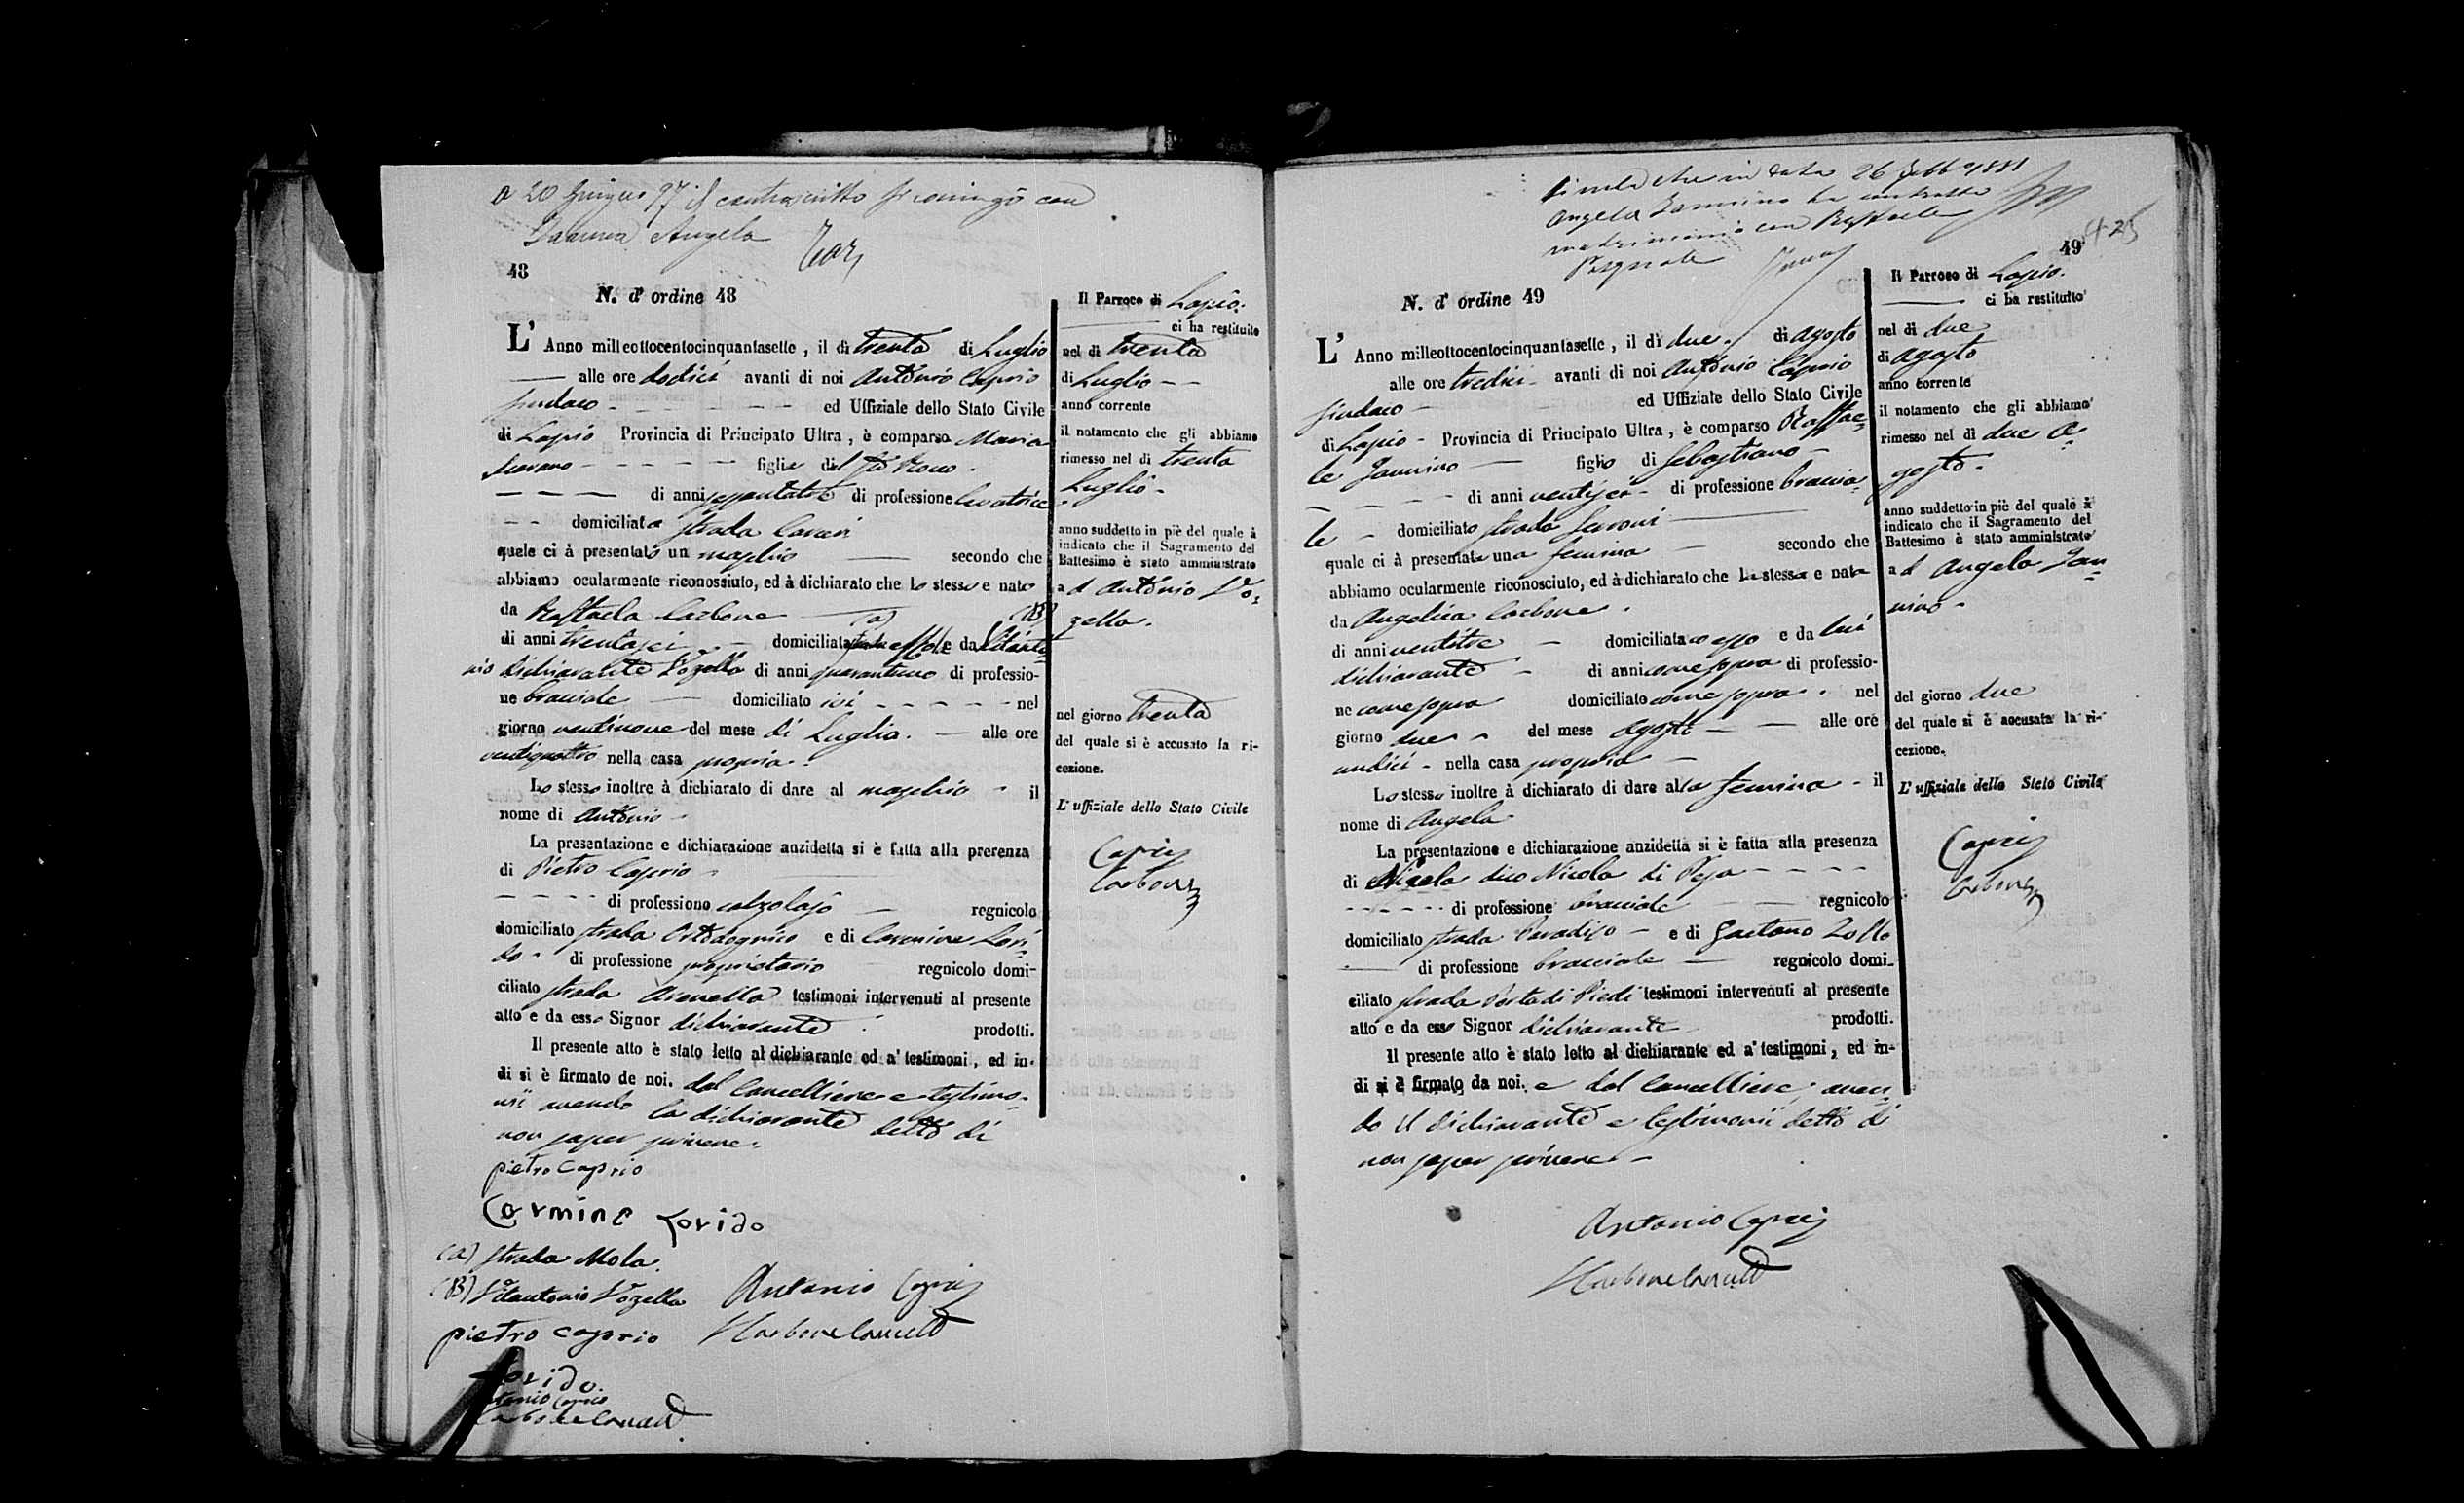 a 20 Giugno 97 il contro scritto si coniugò con
Angela
48
N. d' ordine 48
L' Anno milleottocentocinquantasette, il dì trenta di Luglio
alle ore dodici avanti di noi Antonio Caprio
Sindaco ed Uffiziale dello Stato Civile
di Lapio Provincia di Principato Ultra, è comparsa Maria
Scarano figlia del fu Rocco
di anni sessantatre di professione levatrice
domiciliata strada
quale ci à presentato un maschio secondo che
abbiamo ocularmente riconossiuto, ed à dichiarato che Lo stesso e nato
da Raffaela Carbone (a) (B)
di anni trentasei domiciliata e da
dichiarante Vozella di anni quarantuno di professio-
ne bracciale domiciliato ivi nel
giorno ventinove del mese di Luglio. alle ore
ventiquattro nella casa propria.
Lo stesso inoltre à dichiarato di dare al maschio il
nome di Antonio
La presentazione e dichiarazione anzidetta si è fatta alla prerenza
di Pietro Caprio
di professione calzolajo regnicolo
domiciliato strada e di Carmine Lori=
do di professione proprietario regnicolo domi-
ciliato strada testimoni intervenuti al presente
atto e da esso Signor dichiarante prodotti.
Il presente atto è stato letto al dichiarante ed a' testimoni, ed in-
di si è firmato de noi. dal Cancelliere e testimo=
nii avendo la dichiarante detto di
non saper scrivere.
pietro caprio
Carmine Lorido
(a) strada Mola.
(B) Vitantonio Vozella
Antonio Caprio
pietro caprio
Carbone Cancell
Lorido
Antonio Caprio
Carbone Cancell
Il Parroco di Lapio.
ci ha restituito
nel di trenta
di Luglio
anno corrente
il notamento che gli abbiamo
rimesso nel di trenta
Luglio
anno suddetto in piè del quale à
indicato che il Sagramento del
Battesimo è stato amministrato
ad Antonio Vo=
zella.
nel giorno trenta
del quale si è accusato la ri-
cezione.
L' uffiziale dello Stato Civile
Caprio
Carbone
Si nota che in data 26 Febb 1881
Angela Iannino ha contratto
matrimonio con Raffaele
Pasquale
49
425
N. d' ordine 49
L' Anno milleottocentocinquantasette, il dì due di Agosto
alle ore tredici avanti di noi Antonio Caprio
Sindaco ed Uffiziale dello Stato Civile
di Lapio Provincia di Principato Ultra, è comparso Raffae=
le Iannino figlio di Sebastiano
di anni ventisei di professione braccia=
le domiciliato strada
quale ci à presentata una femina secondo che
abbiamo ocularmente riconosciuto, ed à dichiarato che La stessa e nata
da Angelica Carbone.
di anni ventitre domiciliata con esso e da lui
dichiarante di anni come sopra di professio-
ne come sopra domiciliato come sopra. nel
giorno due del mese Agosto alle ore
undici nella casa propria
Lo stesso inoltre à dichiarato di dare alla femina il
nome di Angela
La presentazione e dichiarazione anzidetta si è fatta alla presenza
di dico Nicola di
di professione bracciale regnicolo
domiciliato strada Paradiso e di Gaetano Zollo
di professione bracciale regnicolo domi-
ciliato strada Porta di Piedi testimoni intervenuti al presente
atto e da esso Signor dichiarante prodotti.
Il presente atto è stato letto al dichiarante ed a' testimoni, ed in-
di si è firmato da noi. e dal Cancelliere, aven=
do il dichiarante e testimonii detto di
non saper scrivere
Antonio Caprio
Carbone Cancell
Il Parroco di Lapio.
ci ha restituito
nel di due
di Agosto
anno corrente
il notamento che gli abbiamo
rimesso nel di due A=
gosto.
anno suddetto in piè del quale à
indicato che il Sagramento del
Battesimo è stato amministrato
ad Angela Ian=
nino
del giorno due
del quale si è accusata la ri-
cezione.
L' uffiziale dello Stato Civile
Caprio
Carbone